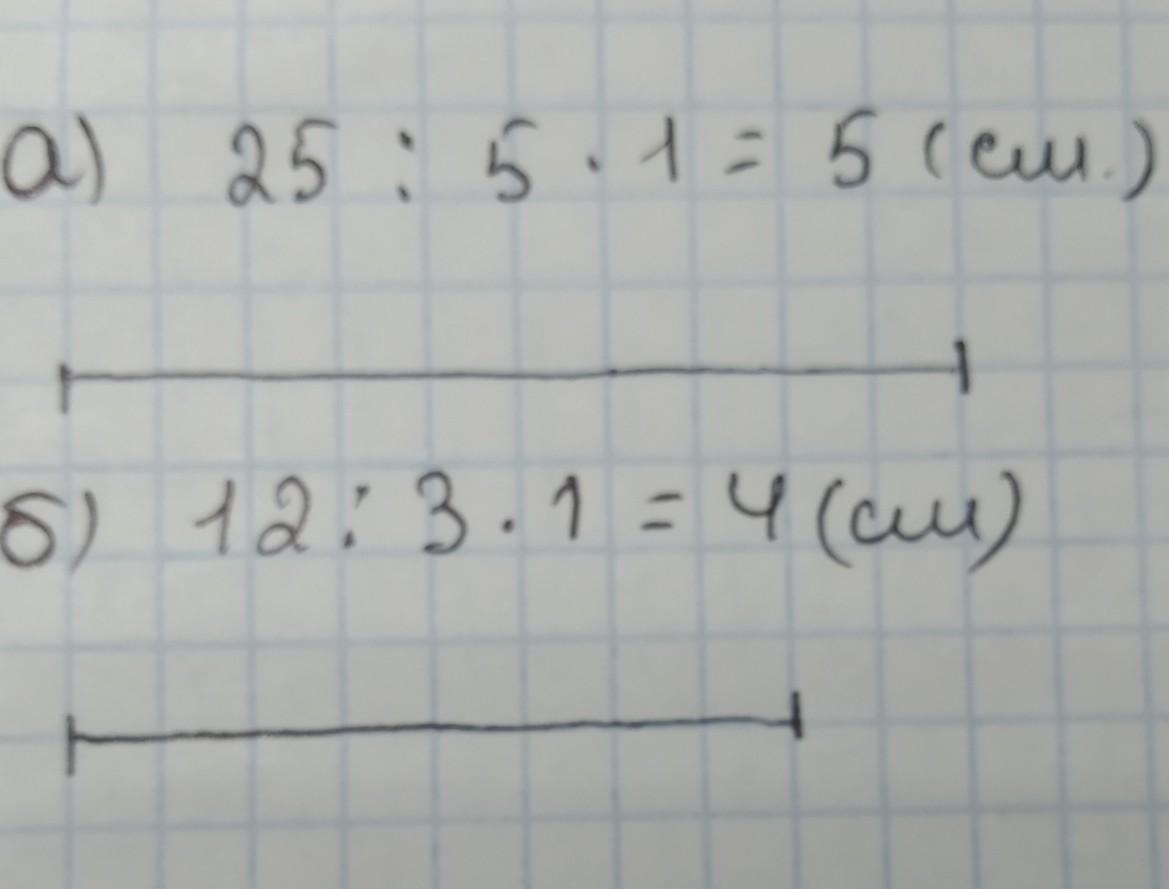 а) 25 : 5 · 1 = 5 (см.)
б) 12 : 3 · 1 = 4 (см)